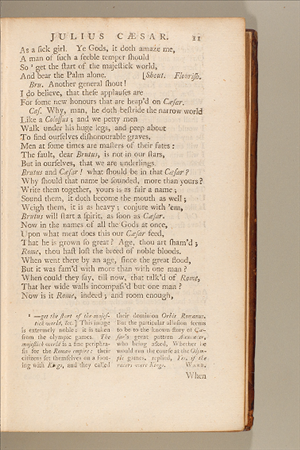 JULIUS CÆSAR. 21
As a ſick girl. Ye Gods, it doth amaze me,
A man of ſuch a feeble temper ſhould
So ¹ get the ſtart of the majeſtick world,
And bear the Palm alone. [Shout. Flouriſh.
Bru. Another general ſhout!
I do believe, that theſe applauſes are
For ſome new honours that are heap'd on Cæſar.
Caſ. Why, man, he doth beſtride the narrow world
Like a Coloſſus; and we petty men
Walk under his huge legs, and peep about
To find ourſelves diſhonourable graves.
Men at ſome times are maſters of their fates:
The fault, dear Brutus, is not in our ſtars,
But in ourſelves, that we are underlings.
Brutus and Cæſar! what ſhould be in that Cæſar?
Why ſhould that name be ſounded, more than yours?
Write them together, yours is as fair a name;
Sound them, it doth become the mouth as well;
Weigh them, it is as heavy; conjure with 'em,
Brutus will ſtart a ſpirit, as ſoon as Cæſar.
Now in the names of all the Gods at once,
Upon what meat does this our Cæſar feed,
That he is grown ſo great? Age, thou art ſham'd;
Rome, thou haſt loſt the breed of noble bloods.
When went there by an age, ſince the great flood,
But it was fam'd with more than with one man?
When could they ſay, till now, that talk'd of Rome,
That her wide walls incompaſs'd but one man?
Now is it Rome, indeed; and room enough,
¹ —get the ſtart of the majeſ-
tick world, &c.] This image
is extremely noble: it is taken
from the olympic games. The
majeſtick world is a fine periphra-
ſis for the Roman empire: their
citizens ſet themſelves on a foot-
ing with Kings, and they called
their dominion Orbis Romanus.
But the particular alluſion ſeems
to be to the known ſtory of Cæ-
ſar's great pattern Alexander,
who being aſked, Whether he
would run the courſe at the Olym-
pic games, replied, Yes, if the
racers were Kings. WARB.
When